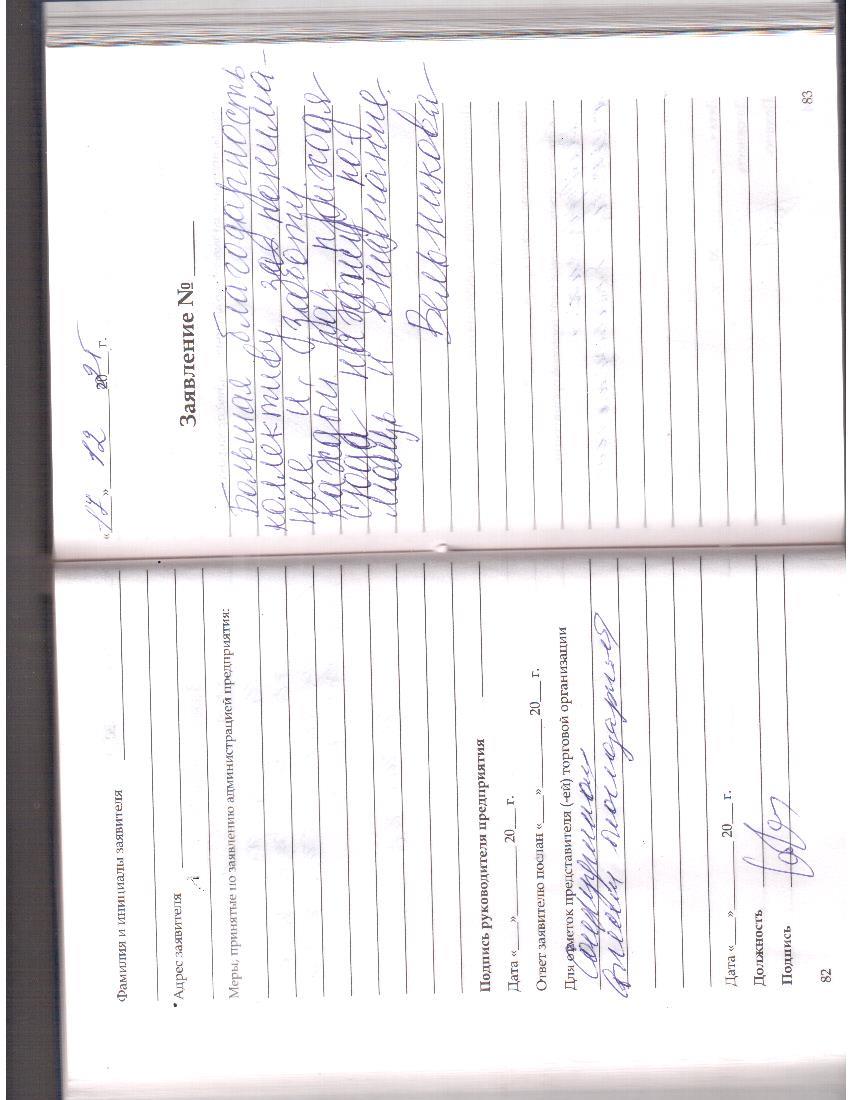 Фамилия и инициалы заявителя
Адрес заявителя
Меры, принятые по заявлению администрацией предприятия:
Подпись руководителя предприятия
Дата «___» ______ 20__ г.
Ответ заявителю послан «___» ______ 20__ г.
Для отметок представителя (-ей) торговой организации
объявлена
благодарность
Дата «___» ______ 20__ г.
Должность
Подпись
82
«17» 12 2025 г.
Заявление № ___
Большая благодарность
коллективу за понима-
ние и заботу
каждый раз приходя
сюда нахожу по
мощь и внимание.
Вельникова
83